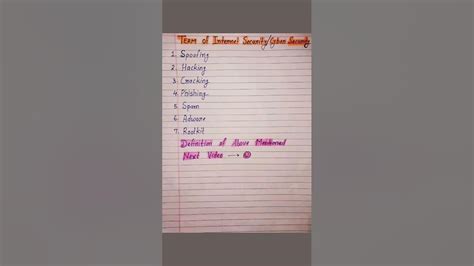 Term of Internet Security/Cyber Security
1. Spoofing
2. Hacking
3. Cracking
4. Phishing
5. Spam
6. Adware
7. Rootkit
Definition of Above Mentioned
Next Video →